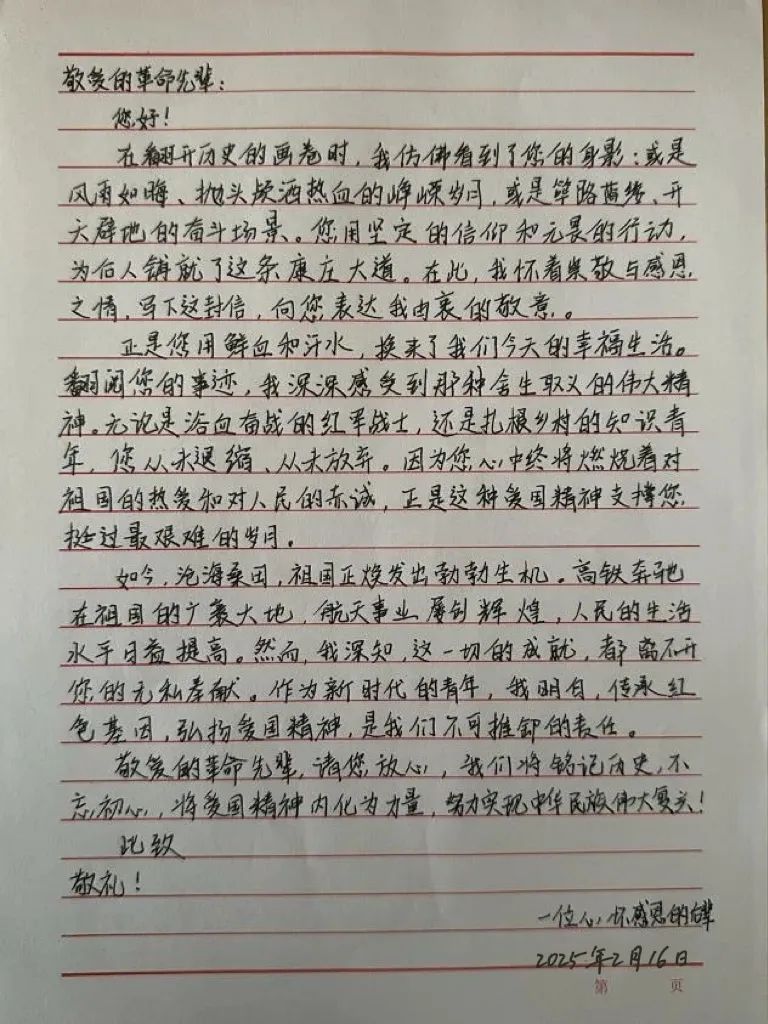 敬爱的革命先辈：
您好！
在翻开历史的画卷时，我仿佛看到了您的身影：或是
风雨如晦、抛头颅洒热血的峥嵘岁月，或是筚路蓝缕、开
天辟地的奋斗场景。您用坚定的信仰和无畏的行动，
为后人铺就了这条康庄大道。在此，我怀着崇敬与感恩
之情，写下这封信，向您表达我由衷的敬意。
正是您用鲜血和汗水，换来了我们今天的幸福生活。
翻阅您的事迹，我深深感受到那种舍生取义的伟大精
神。无论是浴血奋战的红军战士，还是扎根乡村的知识青
年，您从未退缩、从未放弃。因为您心中终将燃烧着对
祖国的热爱和对人民的赤诚，正是这种爱国精神支撑您
挺过最艰难的岁月。
如今，沧海桑田，祖国正焕发出勃勃生机。高铁奔驰
在祖国的广袤大地，航天事业屡创辉煌，人民的生活
水平日益提高。然而，我深知，这一切的成就，都离不开
您的无私奉献。作为新时代的青年，我明白，传承红
色基因，弘扬爱国精神，是我们不可推卸的责任。
敬爱的革命先辈，请您放心，我们将铭记历史，不
忘初心，将爱国精神内化为力量，努力实现中华民族伟大复兴！
此致
敬礼！
一位心怀感恩的后辈
2025年2月16日
第 页